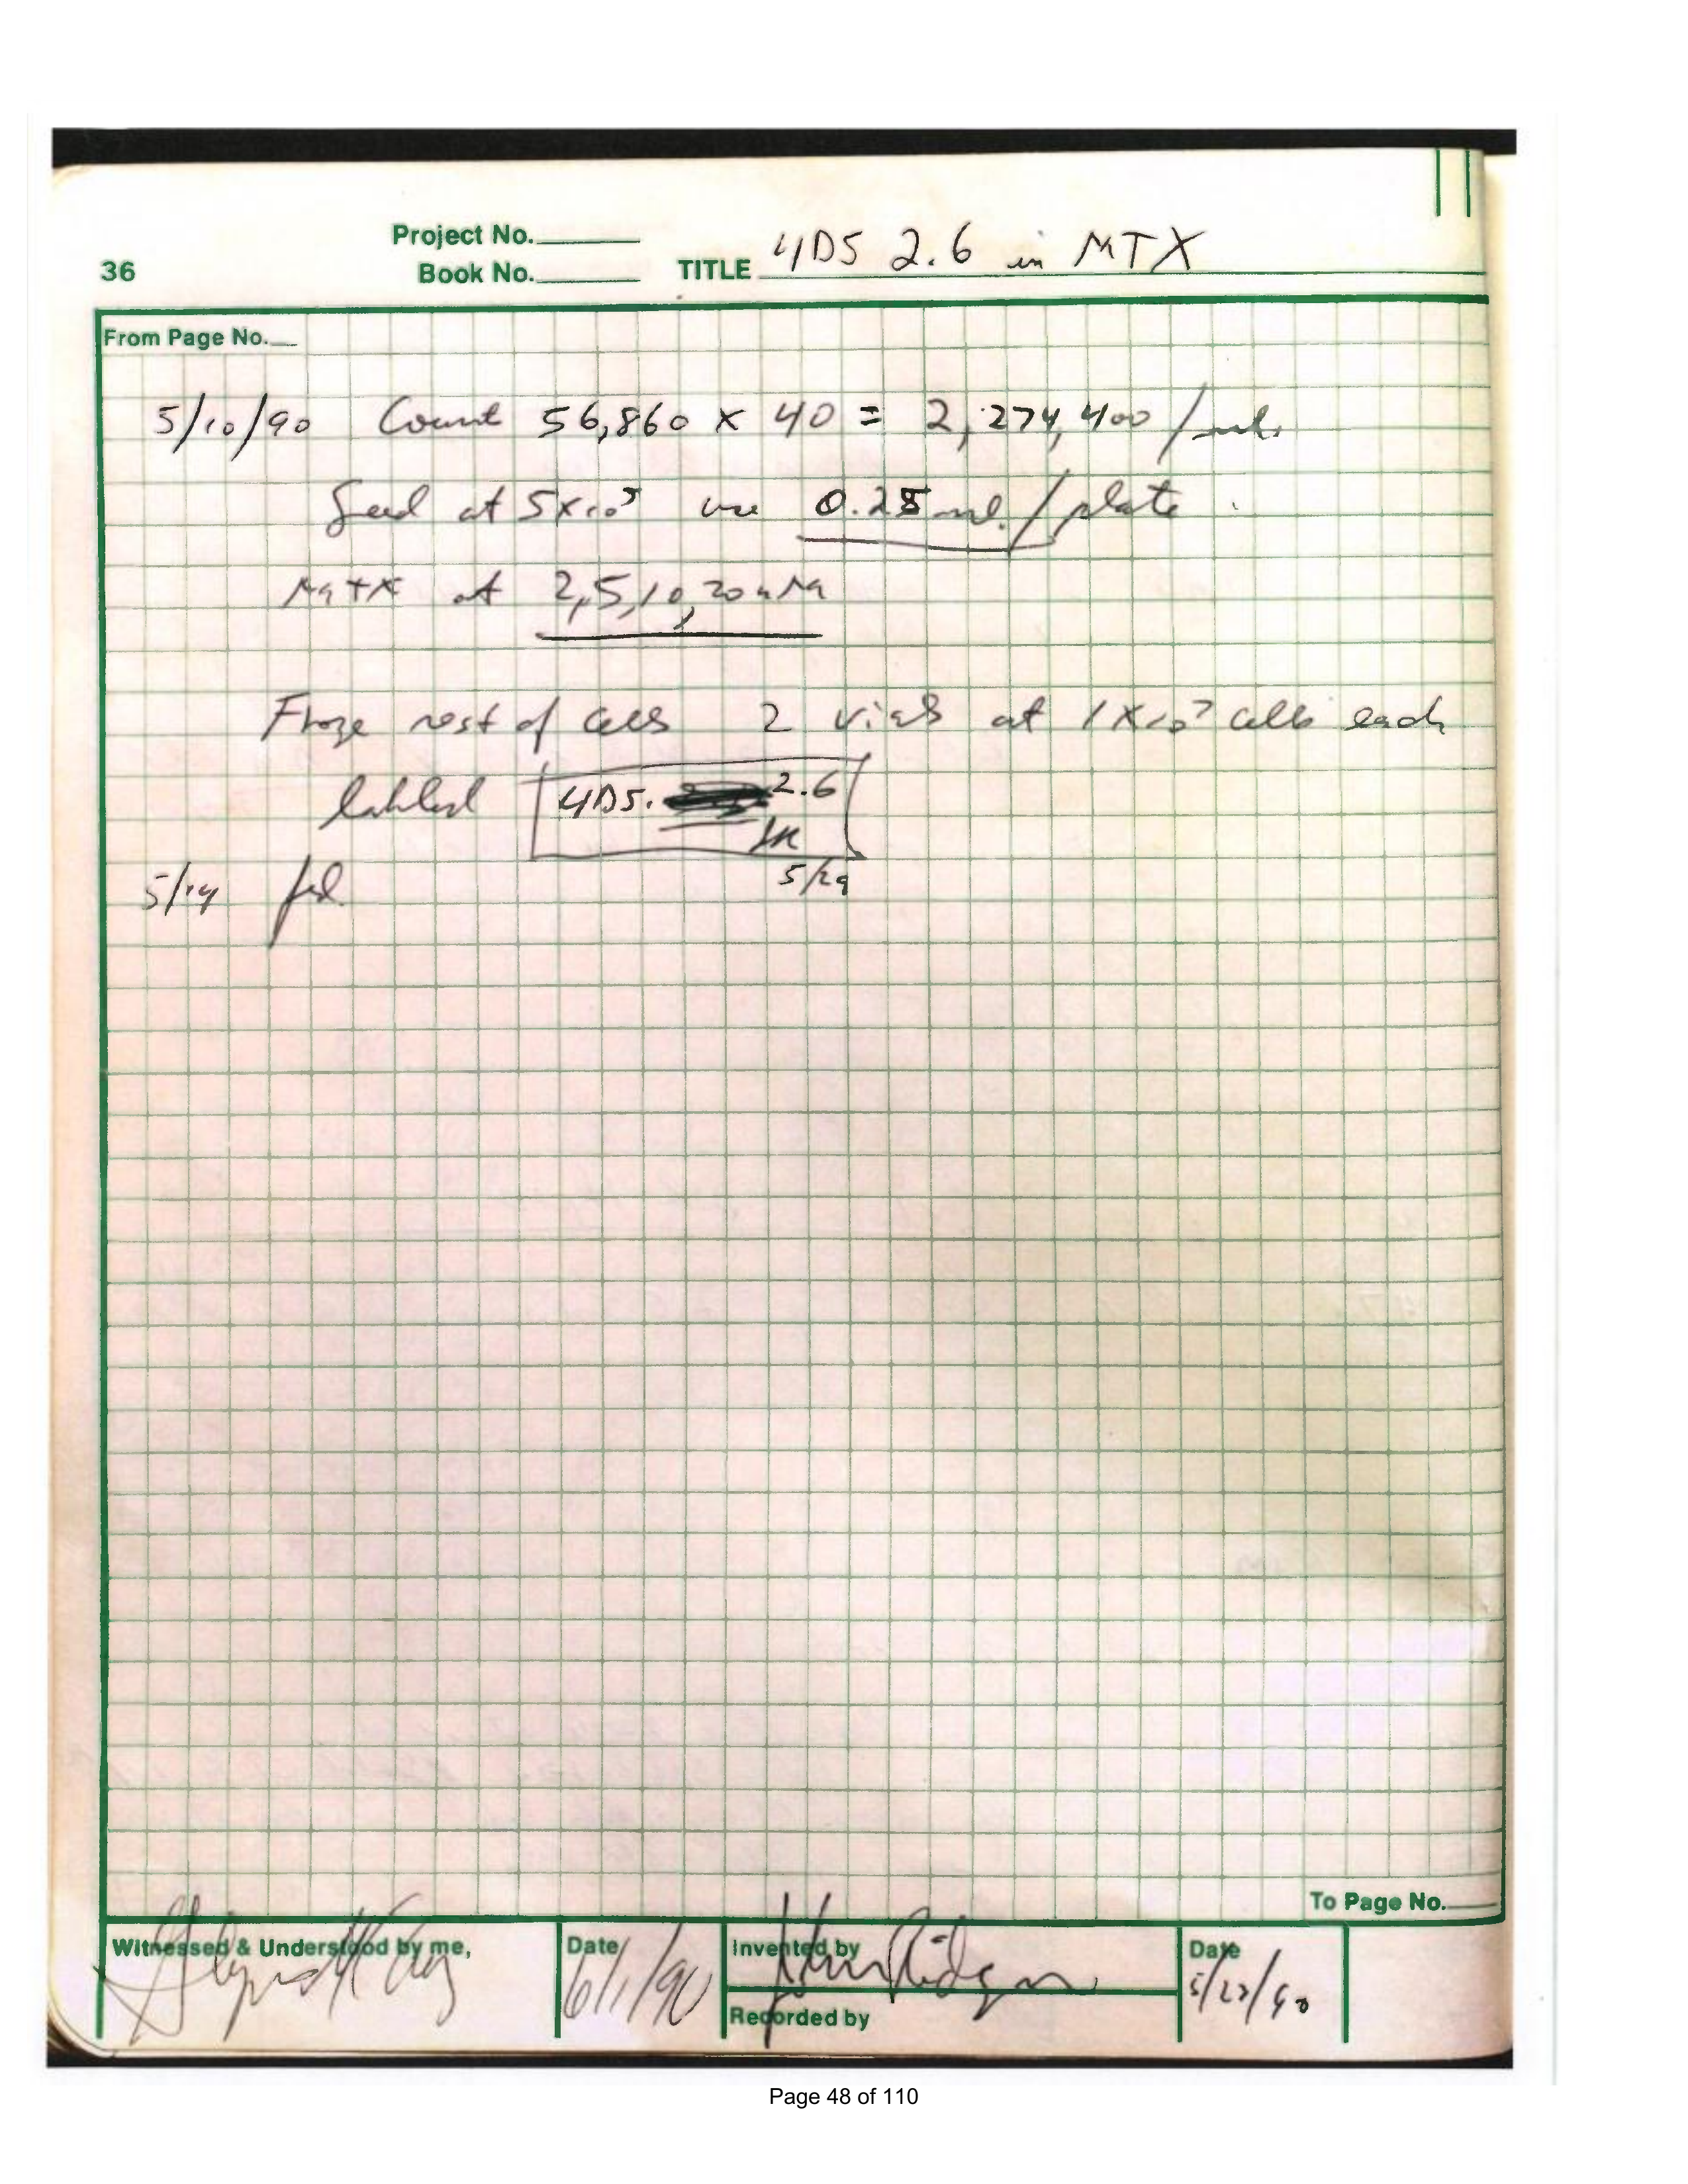 Project No.
36 Book No. TITLE 4D5 2.6 in MTX
From Page No.
5/10/90 Count 56,860 x 40 = 2,274,400 / ml.
Seed at 5x10⁵ use 0.25 ml / plate
MTX at 2,5,10,20 nM
Froze rest of cells 2 vials at 1x10⁷ cells each
labeled 4D5. 2.6
5/29
5/14 fed
To Page No.
Witnessed & Understood by me, Date Invented by Date
6/1/90 5/22/90
Recorded by
Page 48 of 110